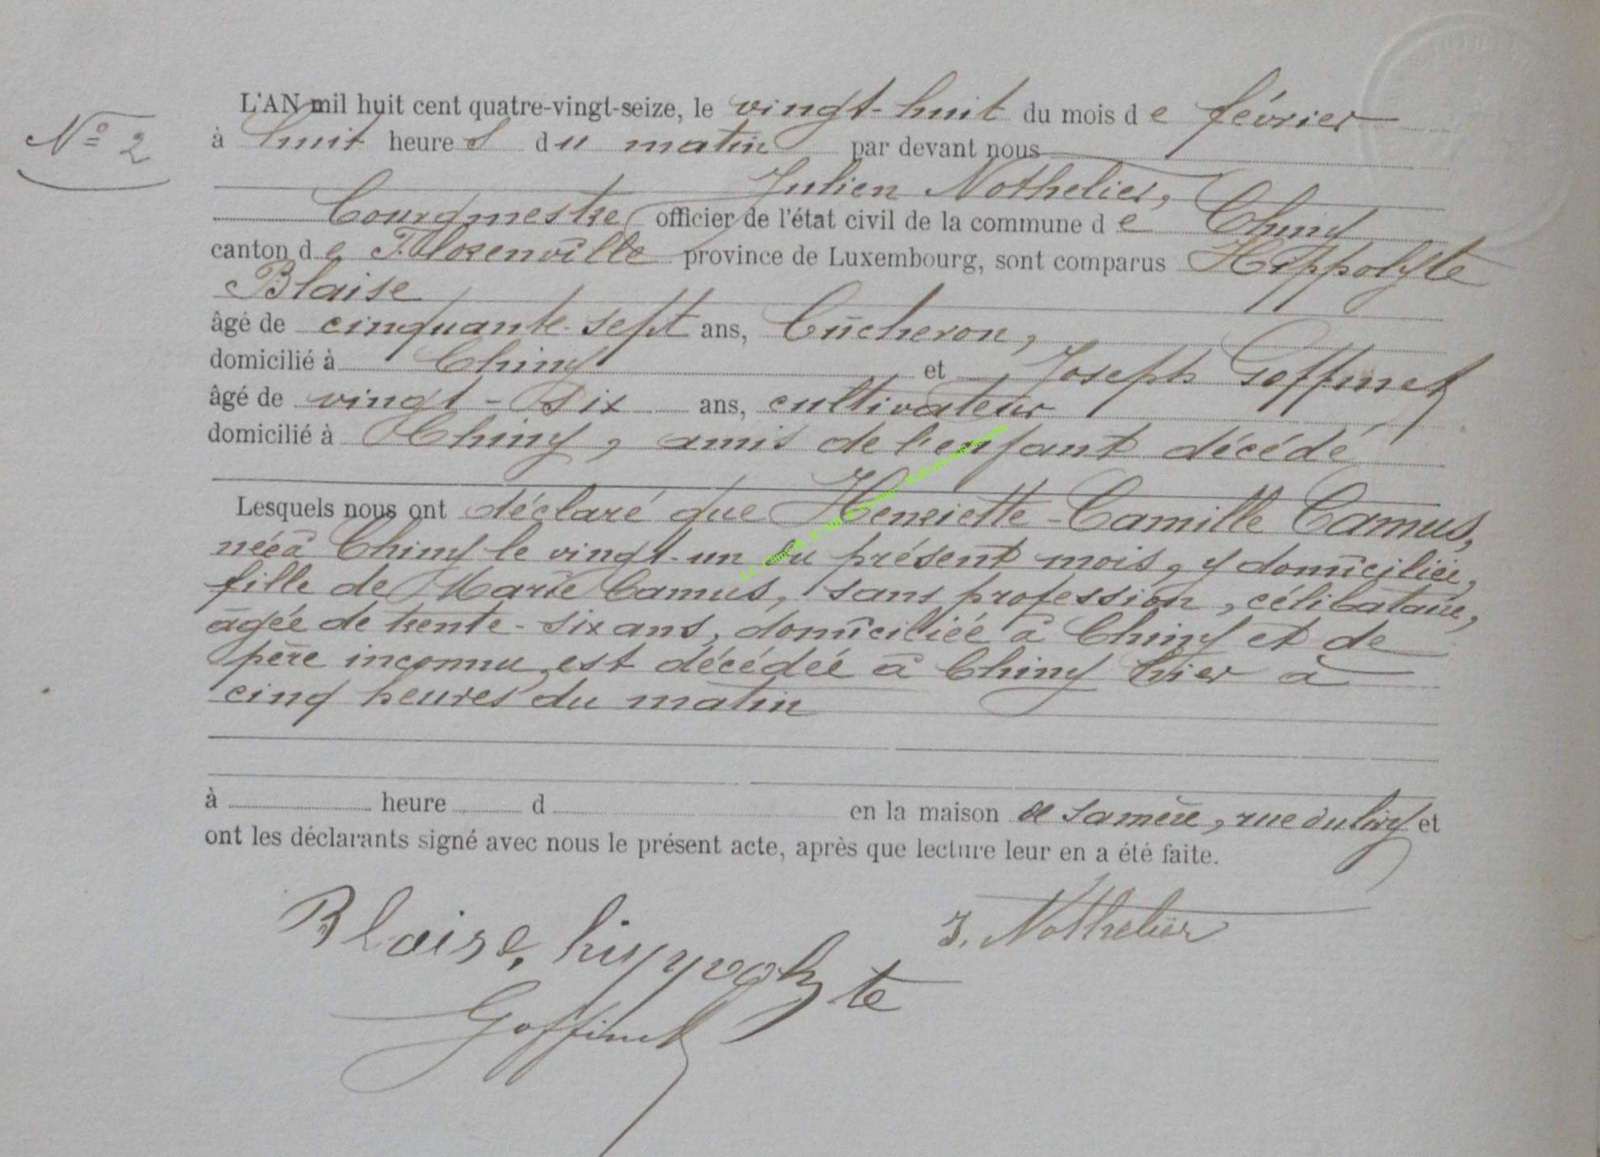 N° 2
L'AN mil huit cent quatre-vingt-seize, le vingt-huit du mois de février
à huit heures du matin par devant nous
Julien Nothelier,
Bourgmestre officier de l'état civil de la commune de Chiny
canton de Florenville province de Luxembourg, sont comparus Hippolyte
Blaise
âgé de cinquante-sept ans, Bûcheron,
domicilié à Chiny et Joseph Goffinet
âgé de vingt-six ans, cultivateur
domicilié à Chiny, amis de l'enfant décédé
Lesquels nous ont déclaré que Henriette-Camille Camus,
née à Chiny le vingt-un du présent mois, y domiciliée,
fille de Marie Camus, sans profession, célibataire,
âgée de trente-six ans, domiciliée à Chiny et de
père inconnu, est décédée à Chiny hier à
cinq heures du matin
à heure d en la maison de sa mère, rue du et
ont les déclarants signé avec nous le présent acte, après que lecture leur en a été faite.
J. Nothelier
Blaise, hippolyte
Goffinet